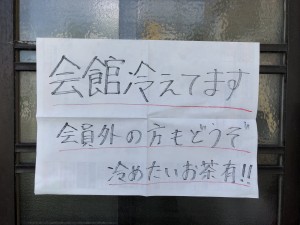 会館冷えてます
会員外の方もどうぞ
冷めたいお茶有!!